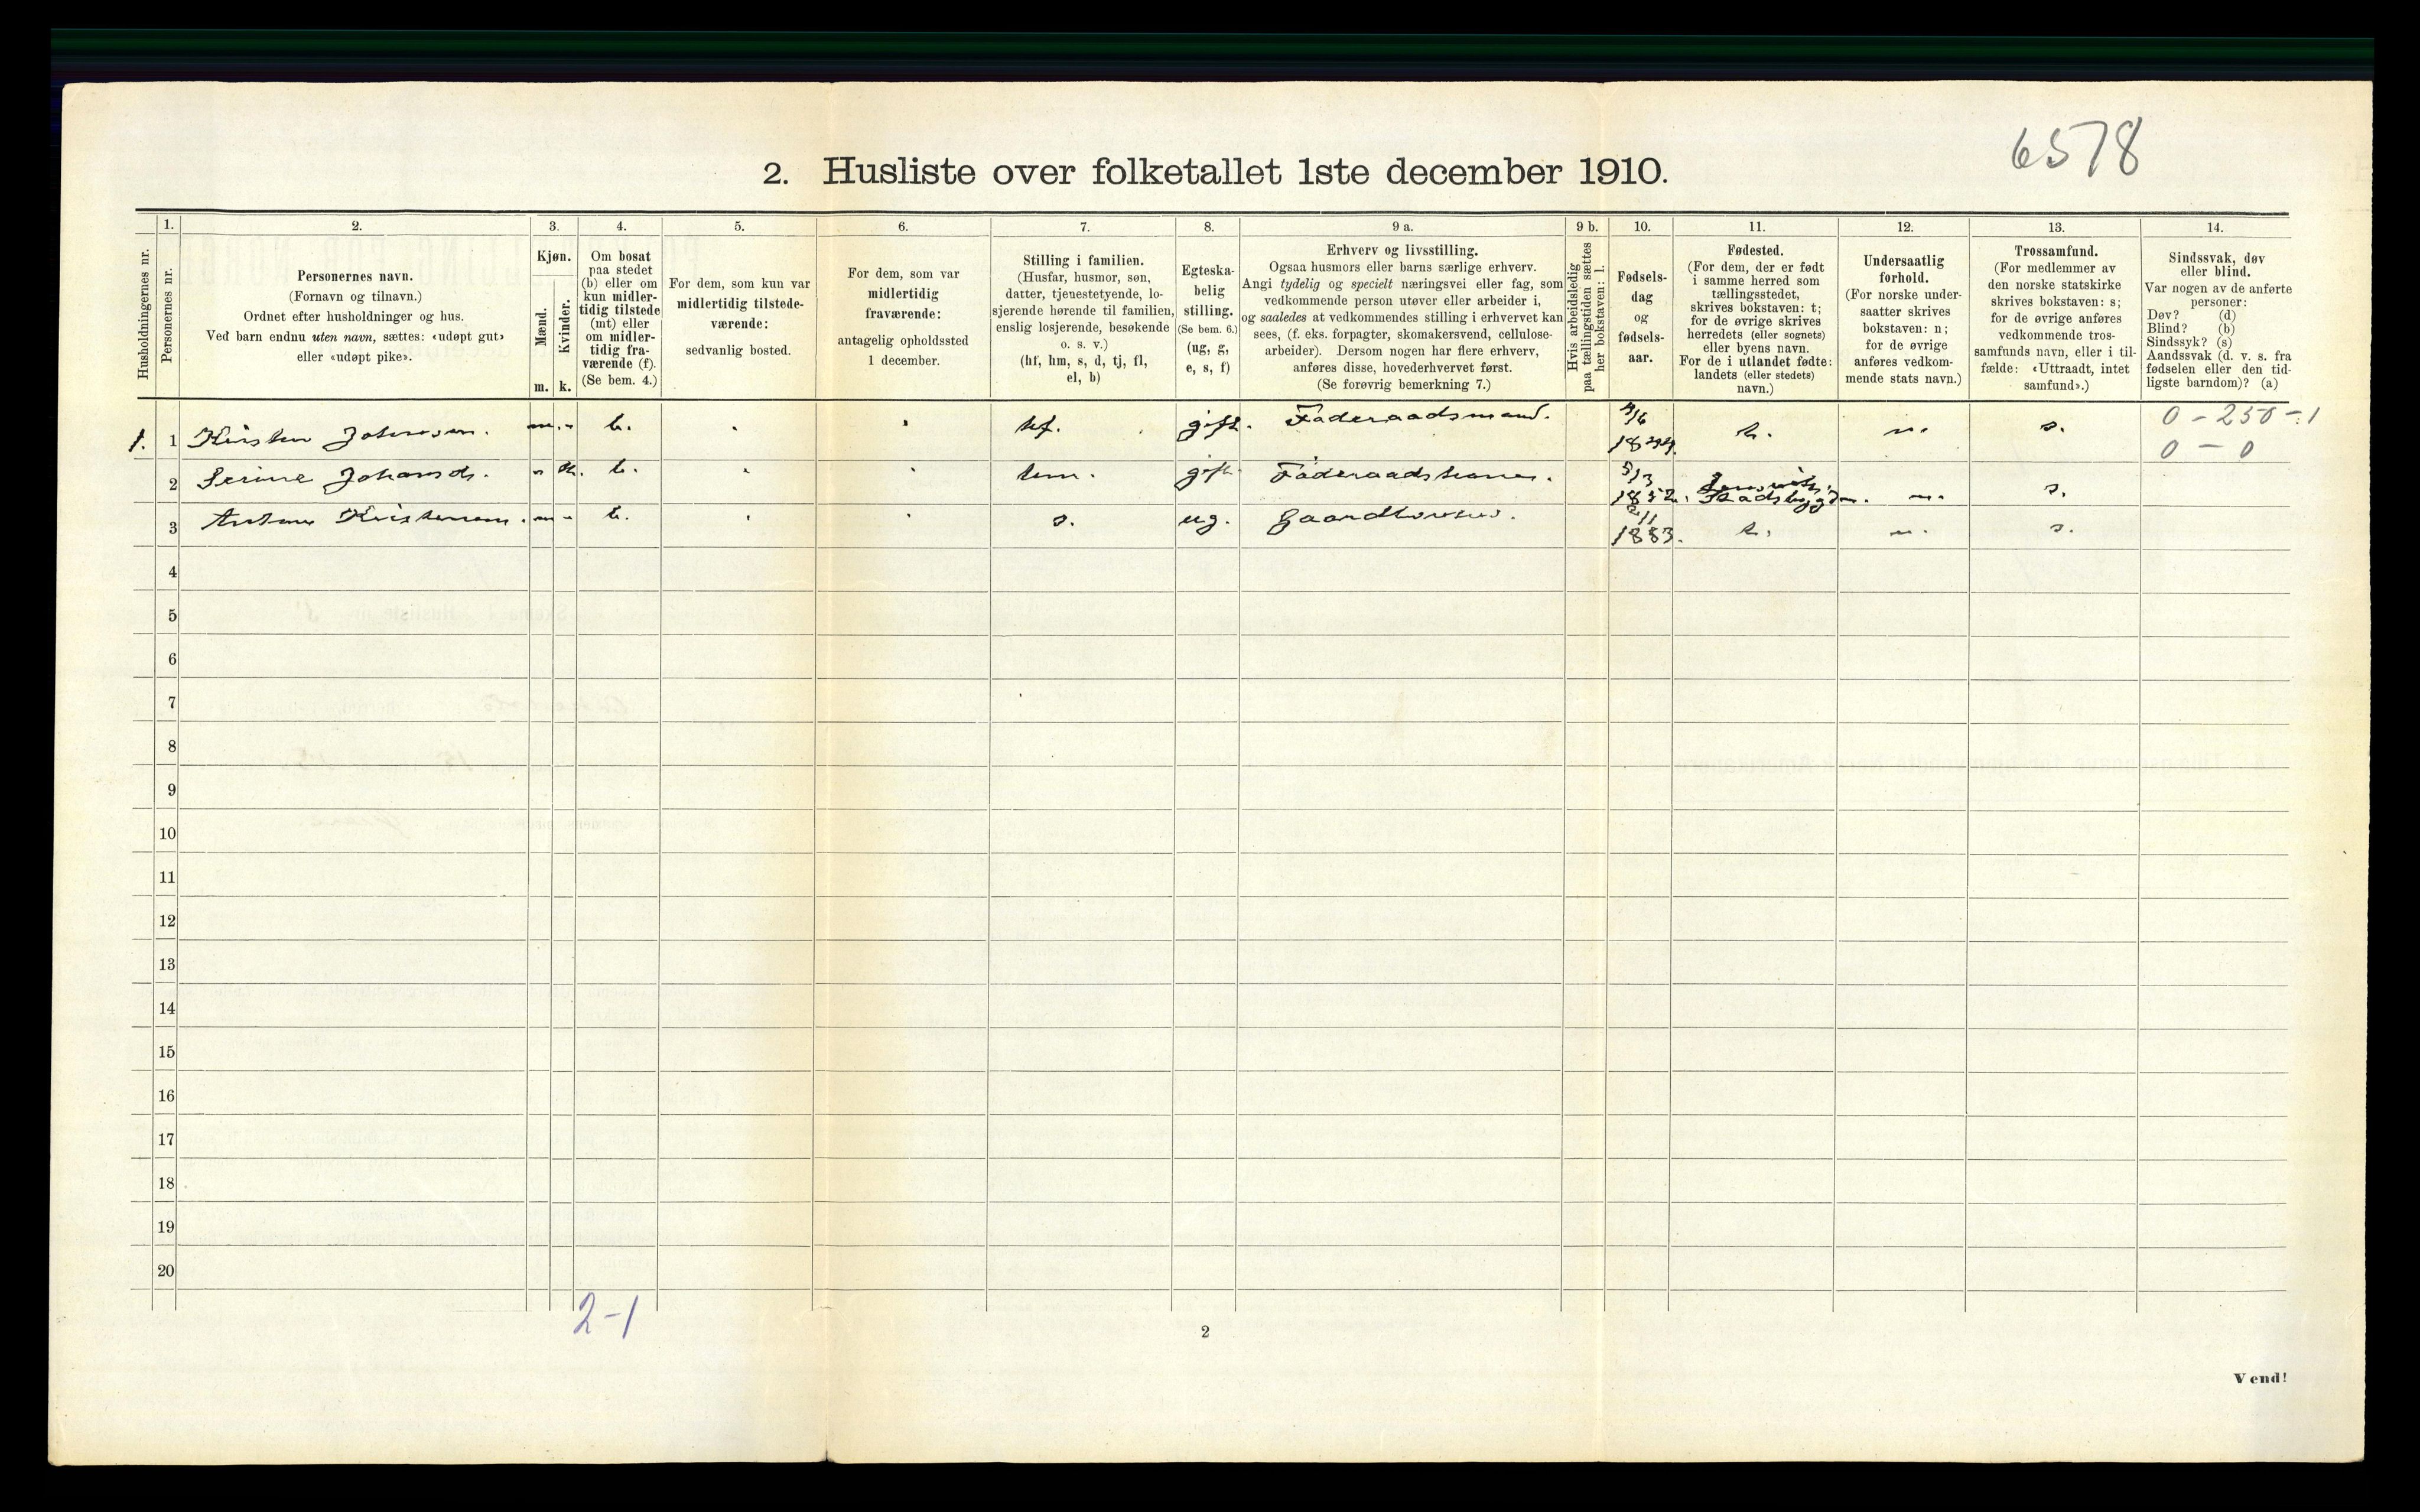 6578
2. Husliste over folketallet 1ste december 1910.
Husholdningernes nr.
1.
Personernes nr.
2.
Personernes navn.
(Fornavn og tilnavn.)
Ordnet efter husholdninger og hus.
Ved barn endnu uten navn, sættes: «udøpt gut»
eller «udøpt pike».
3.
Kjøn.
Mænd.
Kvinder.
m. k.
4.
Om bosat
paa stedet
(b) eller om
kun midler-
tidig tilstede
(mt) eller
om midler-
tidig fra-
værende (f).
(Se bem. 4.)
5.
For dem, som kun var
midlertidig tilstede-
værende:
sedvanlig bosted.
6.
For dem, som var
midlertidig
fraværende:
antagelig opholdssted
1 december.
7.
Stilling i familien.
(Husfar, husmor, søn,
datter, tjenestetyende, lo-
sjerende hørende til familien,
enslig losjerende, besøkende
o. s. v.)
(hf, hm, s, d, tj, fl,
el, b)
8.
Egteska-
belig
stilling.
(Se bem. 6.)
(ug, g,
e, s, f)
9 a.
Erhverv og livsstilling.
Ogsaa husmors eller barns særlige erhverv.
Angi tydelig og specielt næringsvei eller fag, som
vedkommende person utøver eller arbeider i,
og saaledes at vedkommendes stilling i erhvervet kan
sees, (f. eks. forpagter, skomakersvend, cellulose-
arbeider). Dersom nogen har flere erhverv,
anføres disse, hovederhvervet først.
(Se forøvrig bemerkning 7.)
9 b.
Hvis arbeidsledig
paa tællingstiden sættes
her bokstaven: l.
10.
Fødsels-
dag
og
fødsels-
aar.
11.
Fødested.
(For dem, der er født
i samme herred som
tællingsstedet,
skrives bokstaven: t;
for de øvrige skrives
herredets (eller sognets)
eller byens navn.
For de i utlandet fødte:
landets (eller stedets)
navn.)
12.
Undersaatlig
forhold.
(For norske under-
saatter skrives
bokstaven: n;
for de øvrige
anføres vedkom-
mende stats navn.)
13.
Trossamfund.
(For medlemmer av
den norske statskirke
skrives bokstaven: s;
for de øvrige anføres
vedkommende tros-
samfunds navn, eller i til-
fælde: «Uttraadt, intet
samfund».)
14.
Sindssvak, døv
eller blind.
Var nogen av de anførte
personer:
Døv? (d)
Blind? (b)
Sindssyk? (s)
Aandssvak (d. v. s. fra
fødselen eller den tid-
ligste barndom)? (a)
1. 1 Kristen Johnsen. m. - b. hf. gift. Føderaadsmand. t. n. s. 0 - 250 - 1
0 - 0
2 Serine Johansd. - k. b. hm. gift Føderaadskone. 5/3 1852. Stadsbygden. n. s.
3 Kristensen. m - b. s. ug. 2/11 1883. t. n. s.
4
5
6
7
8
9
10
11
12
13
14
15
16
17
18
19
20
2-1
2
Vend!